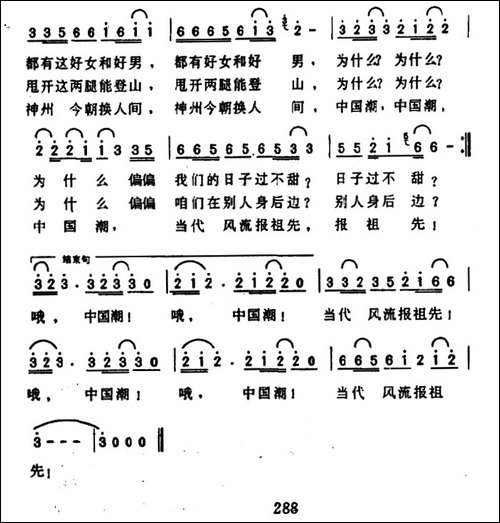 3 3 5 6 6 1 6 i i | 6 6 6 5 6 6 i 3 2 - | 3 2 3 3 2 i 2 2 |
都有这好女和好男，都有好女和好 男，为什么？为什么？
甩开这两腿能登山，甩开两腿能登 山，为什么？为什么？
神州 今朝换人间，神州今朝换人 间，中国潮，中国潮，
2 2 2 i i 3 3 5 | 6 6 5 6 5 6 5 3 3 | 5 5 2 i 6 6 - :||
为 什 么 偏偏 我们的日子过不甜？ 日子过不 甜？
为 什 么 偏偏 咱们在别人身后边？ 别人身后 边？
中 国 潮， 当代 风流报祖先， 报 祖 先；
结束句
3 2 3 · 3 2 3 3 0 | 2 i 2 · 2 i 2 2 0 | 3 3 2 3 5 2 i 6 6 |
哦， 中国潮！ 哦， 中国潮！ 当代 风流报祖先！
3 2 3 · 3 2 3 3 0 | 2 i 2 · 2 i 2 2 0 | 6 6 5 6 i 2 i 2 |
哦， 中国潮！ 哦， 中国潮！ 当代 风流报祖
3 - - - | 3 0 0 0 ||
先！
288